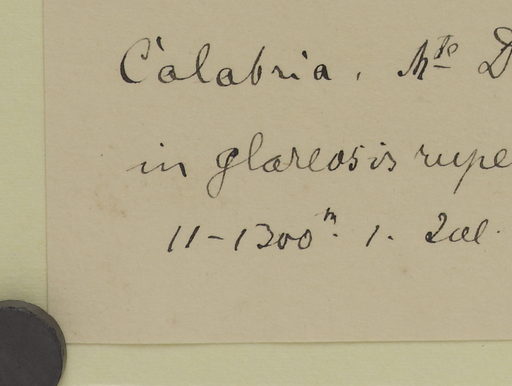 Calabria. Mte D
in glareosis rupe
11-1300m. 1. Jul.